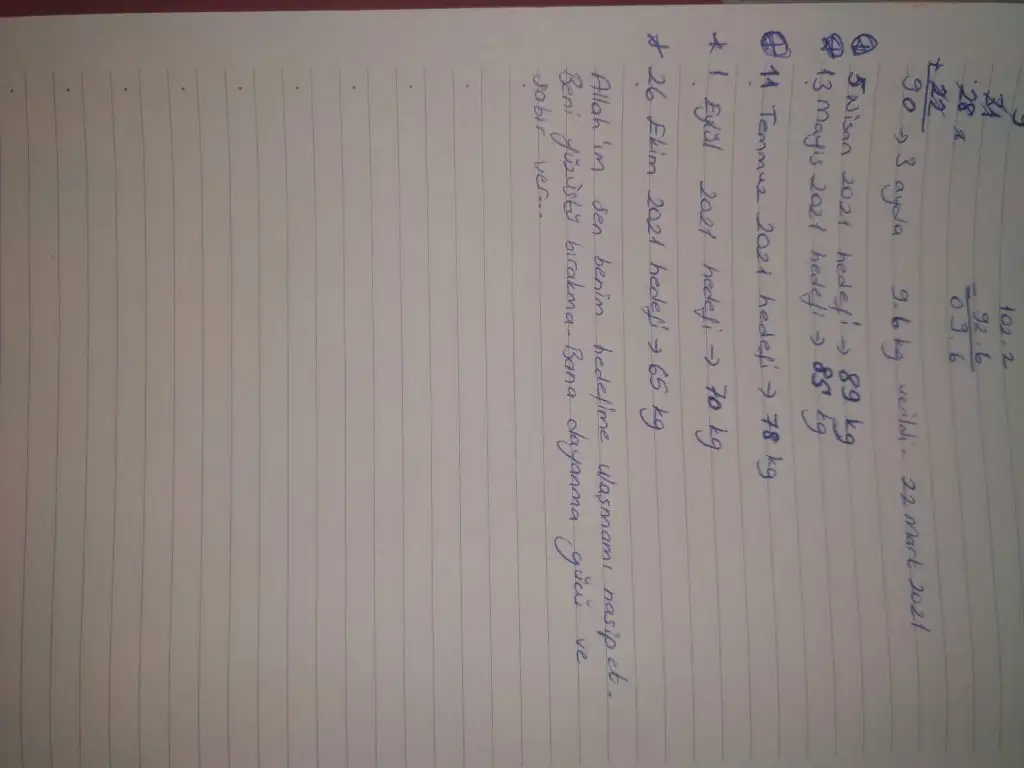 9
21
28 x
+ 22
90 → 3 ayda 9.6 kg verildi. 22 Mart 2021
102.2
- 92.6
09.6
5 Nisan 2021 hedefi → 89 kg
13 Mayıs 2021 hedefi → 85 kg
11 Temmuz 2021 hedefi → 78 kg
* 1 Eylül 2021 hedefi → 70 kg
* 26 Ekim 2021 hedefi → 65 kg
Allah'ım sen benim hedefime ulaşmamı nasip et.
Beni yüzüstü bırakma. Bana dayanma gücü ve
sabır ver...